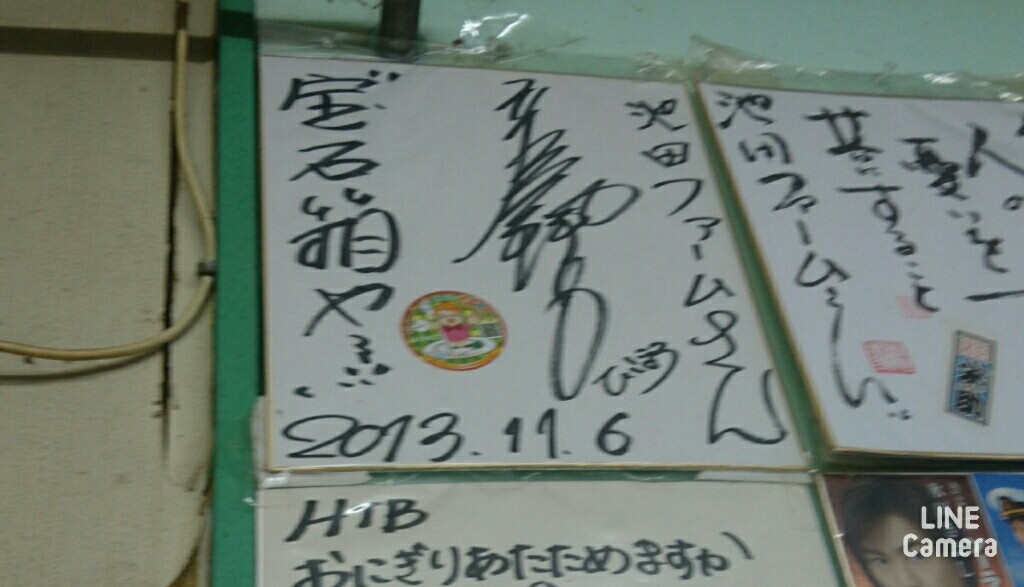 池田ファームさん
彦摩呂
ひこまろ
宝石箱や~!!
2013.11.6
人の
憂いを
共にすること
池田ファームさん
HTB
おにぎりあたためますか
LINE
Camera